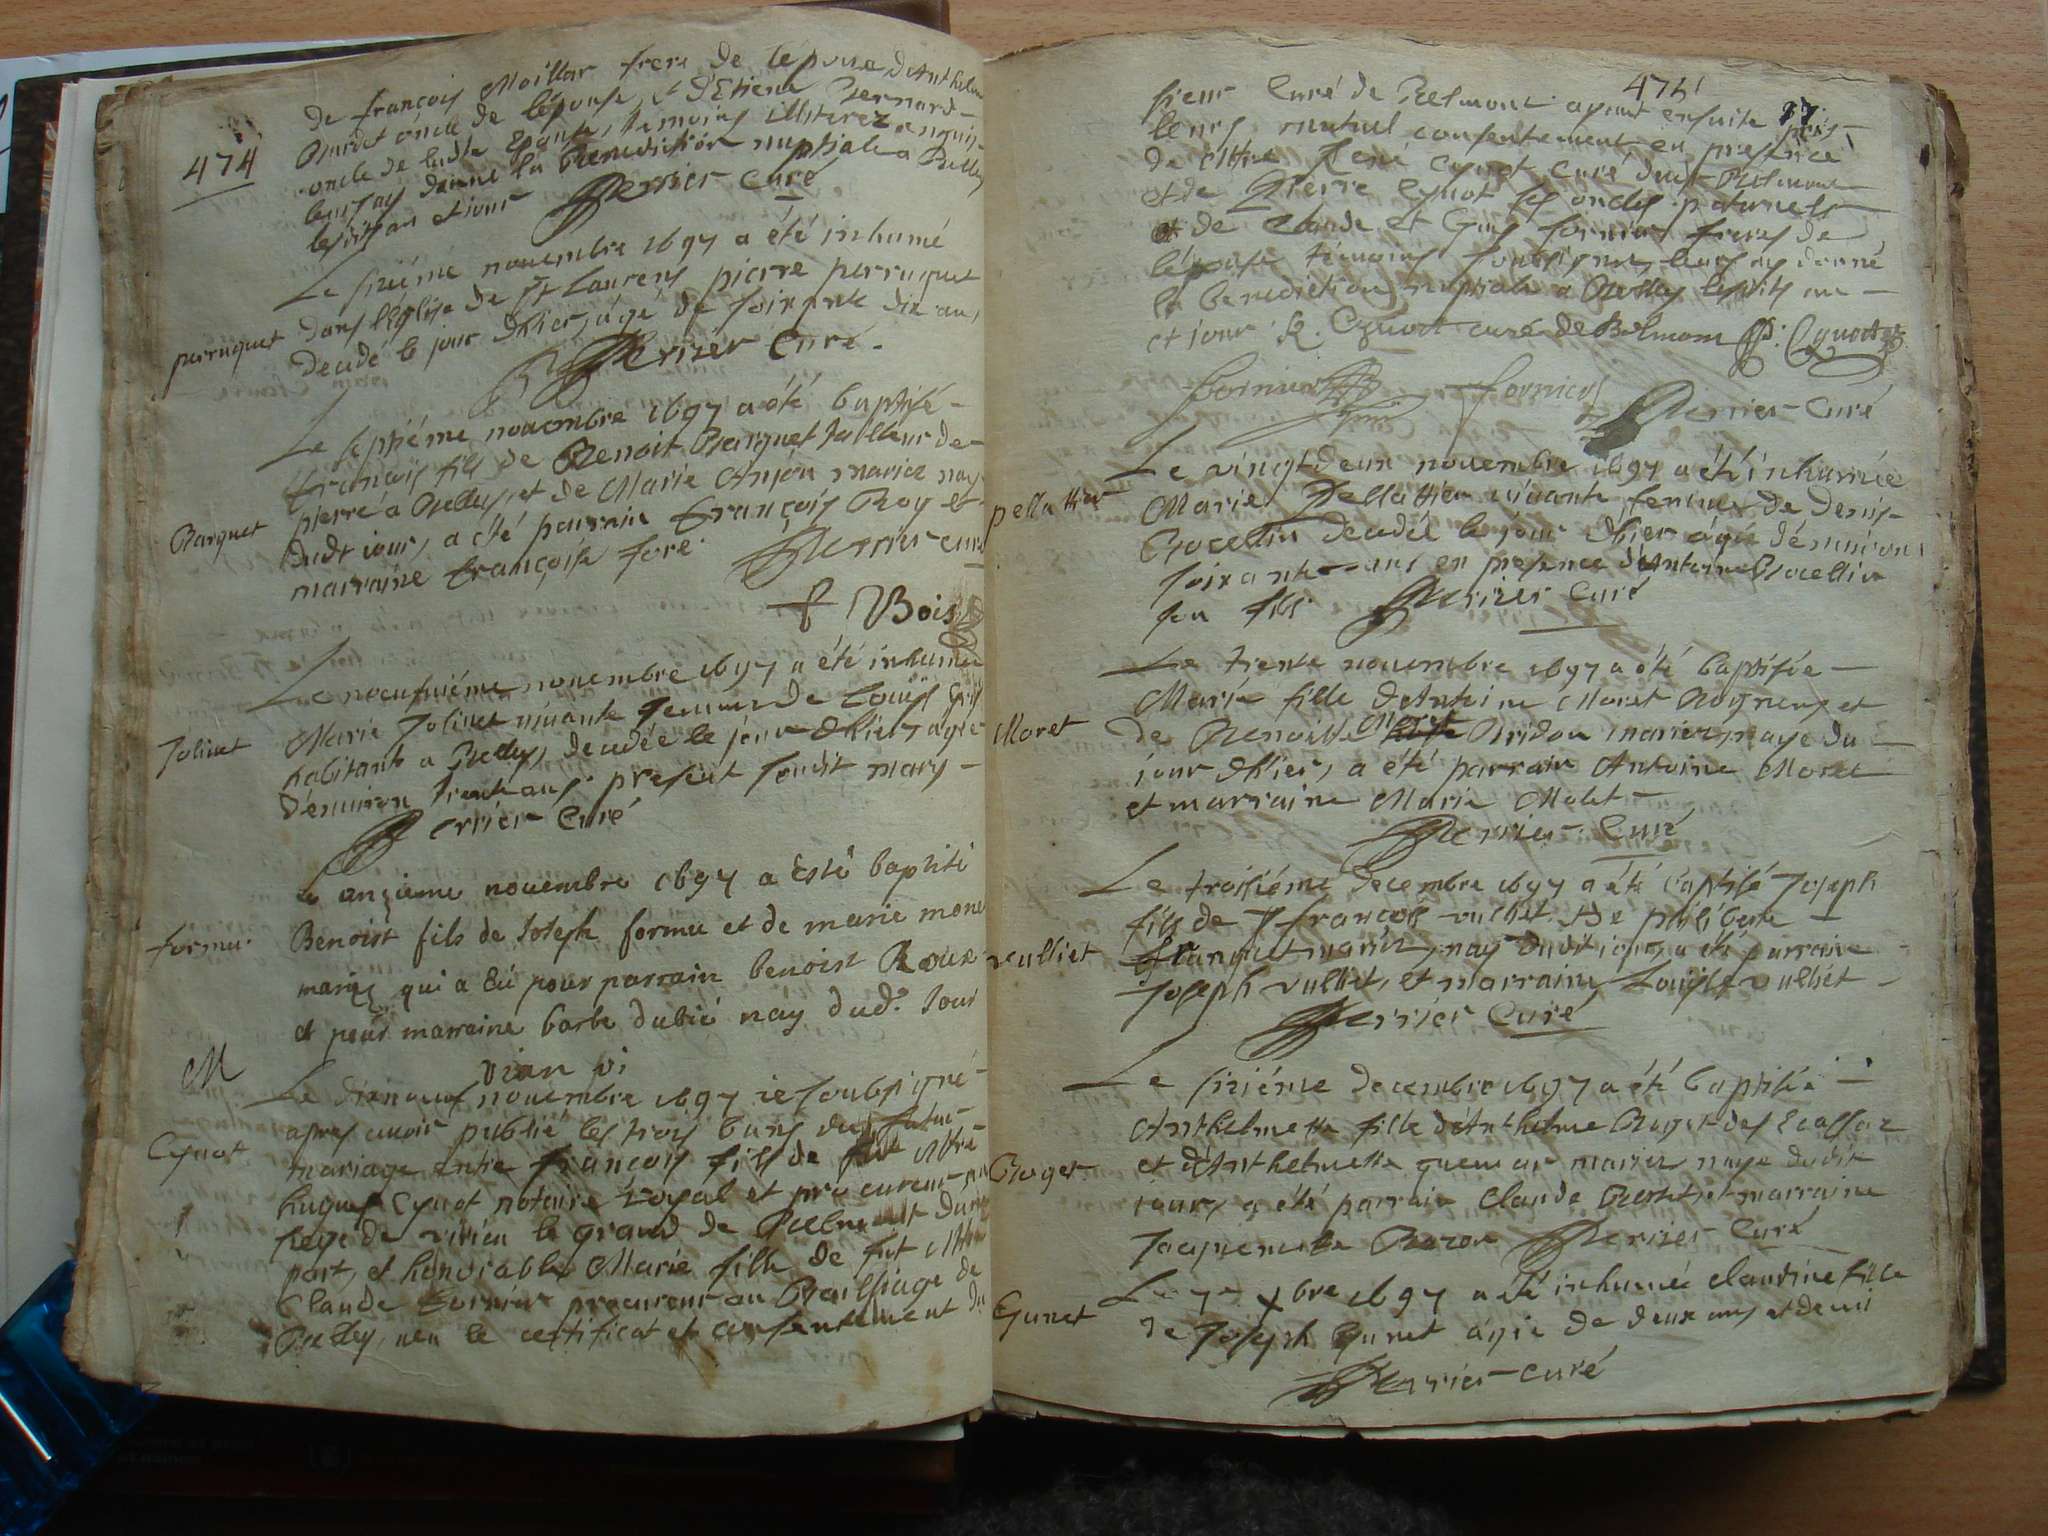 474
de françois Moillar frere de lépouse d'Anthelme
Burdet oncle de lépouse, et d'Etiene Bernard
oncle de ladte épouse, témoins illiterez enquis
leur ay donné la benediction nuptiale a Belley
lesdits an et jour Perrier Curé
Le sixiéme novembre 1697 a été inhumé
perruquet
dans l'église de St Laurens pierre perruquet
decedé le jour d'hier, ágé de soixante dix ans
Perrier Curé.
Le septiéme novembre 1697 a été baptisé
françois fils de Benoit Barquet tailleur de
Barquet
pierre a Belley, et de Marie Anjou mariez nay
dudt jour, a été parrain françois Roy et
marraine françoise foré. Perrier curé
Bois
Le noeufuiéme novembre 1697 a été inhumée
Marie Jolinet vivante femme de Louis
Jolinet
habitant a Belley, decedée le jour d'hier, ágée
d'environ trente ans present sondit mary
Perrier Curé
Le onzieme novembre 1697 a Esté baptisé
formu.
Benoist fils de Joseph formu et de marie mone
mariez qui a Eü pour parrain benoist Roux
et pour marraine barbe dubié nay dud. Jour
vian vi
M
Le dixneuf novembre 1697 ie soubsigné
apres avoir publié les trois bans du futur
Cynot
mariage entre françois fils de Mtre
hugues Cynot notaire Royal et procureur au
siege de virieu le grand de Belmont d'une
part, et honorable Marie fille de fut Mtre
Claude fornier procureur au Bailliage de
Belley, veu le certificat et consentement du
474
77
sieur Curé de Belmont ayant ensuite pris
leurs mutuel consentement en presence
de Mtre René Cynot curé dud. Belmont
et de Pierre Cynot ses oncles paternels
et de Claude et Guy fornier freres de
lépouse témoins soubsignez, leur ay donné
la benediction nuptiale a Belley lesdits an
et jour R. Cynot curé de Belmont P. Cynot
fornier fornier Perrier Curé
Le vingtdeux novembre 1697 a été inhumée
pellattier
Marie Pellattier vivante femme de Denis
Brocellin decedée le jour d'hier ágée d'environ
soixante ans en presence d'Antoine Brocellin
son fils Perrier Curé
Le trente novembre 1697 a été baptisée
Marie fille d'Antoine Moret Vigneron et
Moret
de Benoitte Bridon mariez, naye du
jour d'hier, a été parrain Antoine Moret
et marraine Marie Molet
Perrier Curé
Le troisiéme Decembre 1697 a été baptisé Joseph
fils de françois vulliet et de philiberte
vulliet
mariez, nay dudit jour, a été parrain
Joseph vulliet, et marraine Louise vulliet
Perrier Curé
Le sixiéme Decembre 1697 a été baptisée
Anthelmette fille d'Anthelme Roget des Ecassaz
Roget
et d'Anthelmette mariez naye dudit
jour, a été parrain Claude et marraine
Jacquemette Bozon Perrier Curé
Le 7e xbre 1697 a été inhumée claudine fille
Gunet
de Joseph Gunet ágée de deux ans et demi
Perrier curé